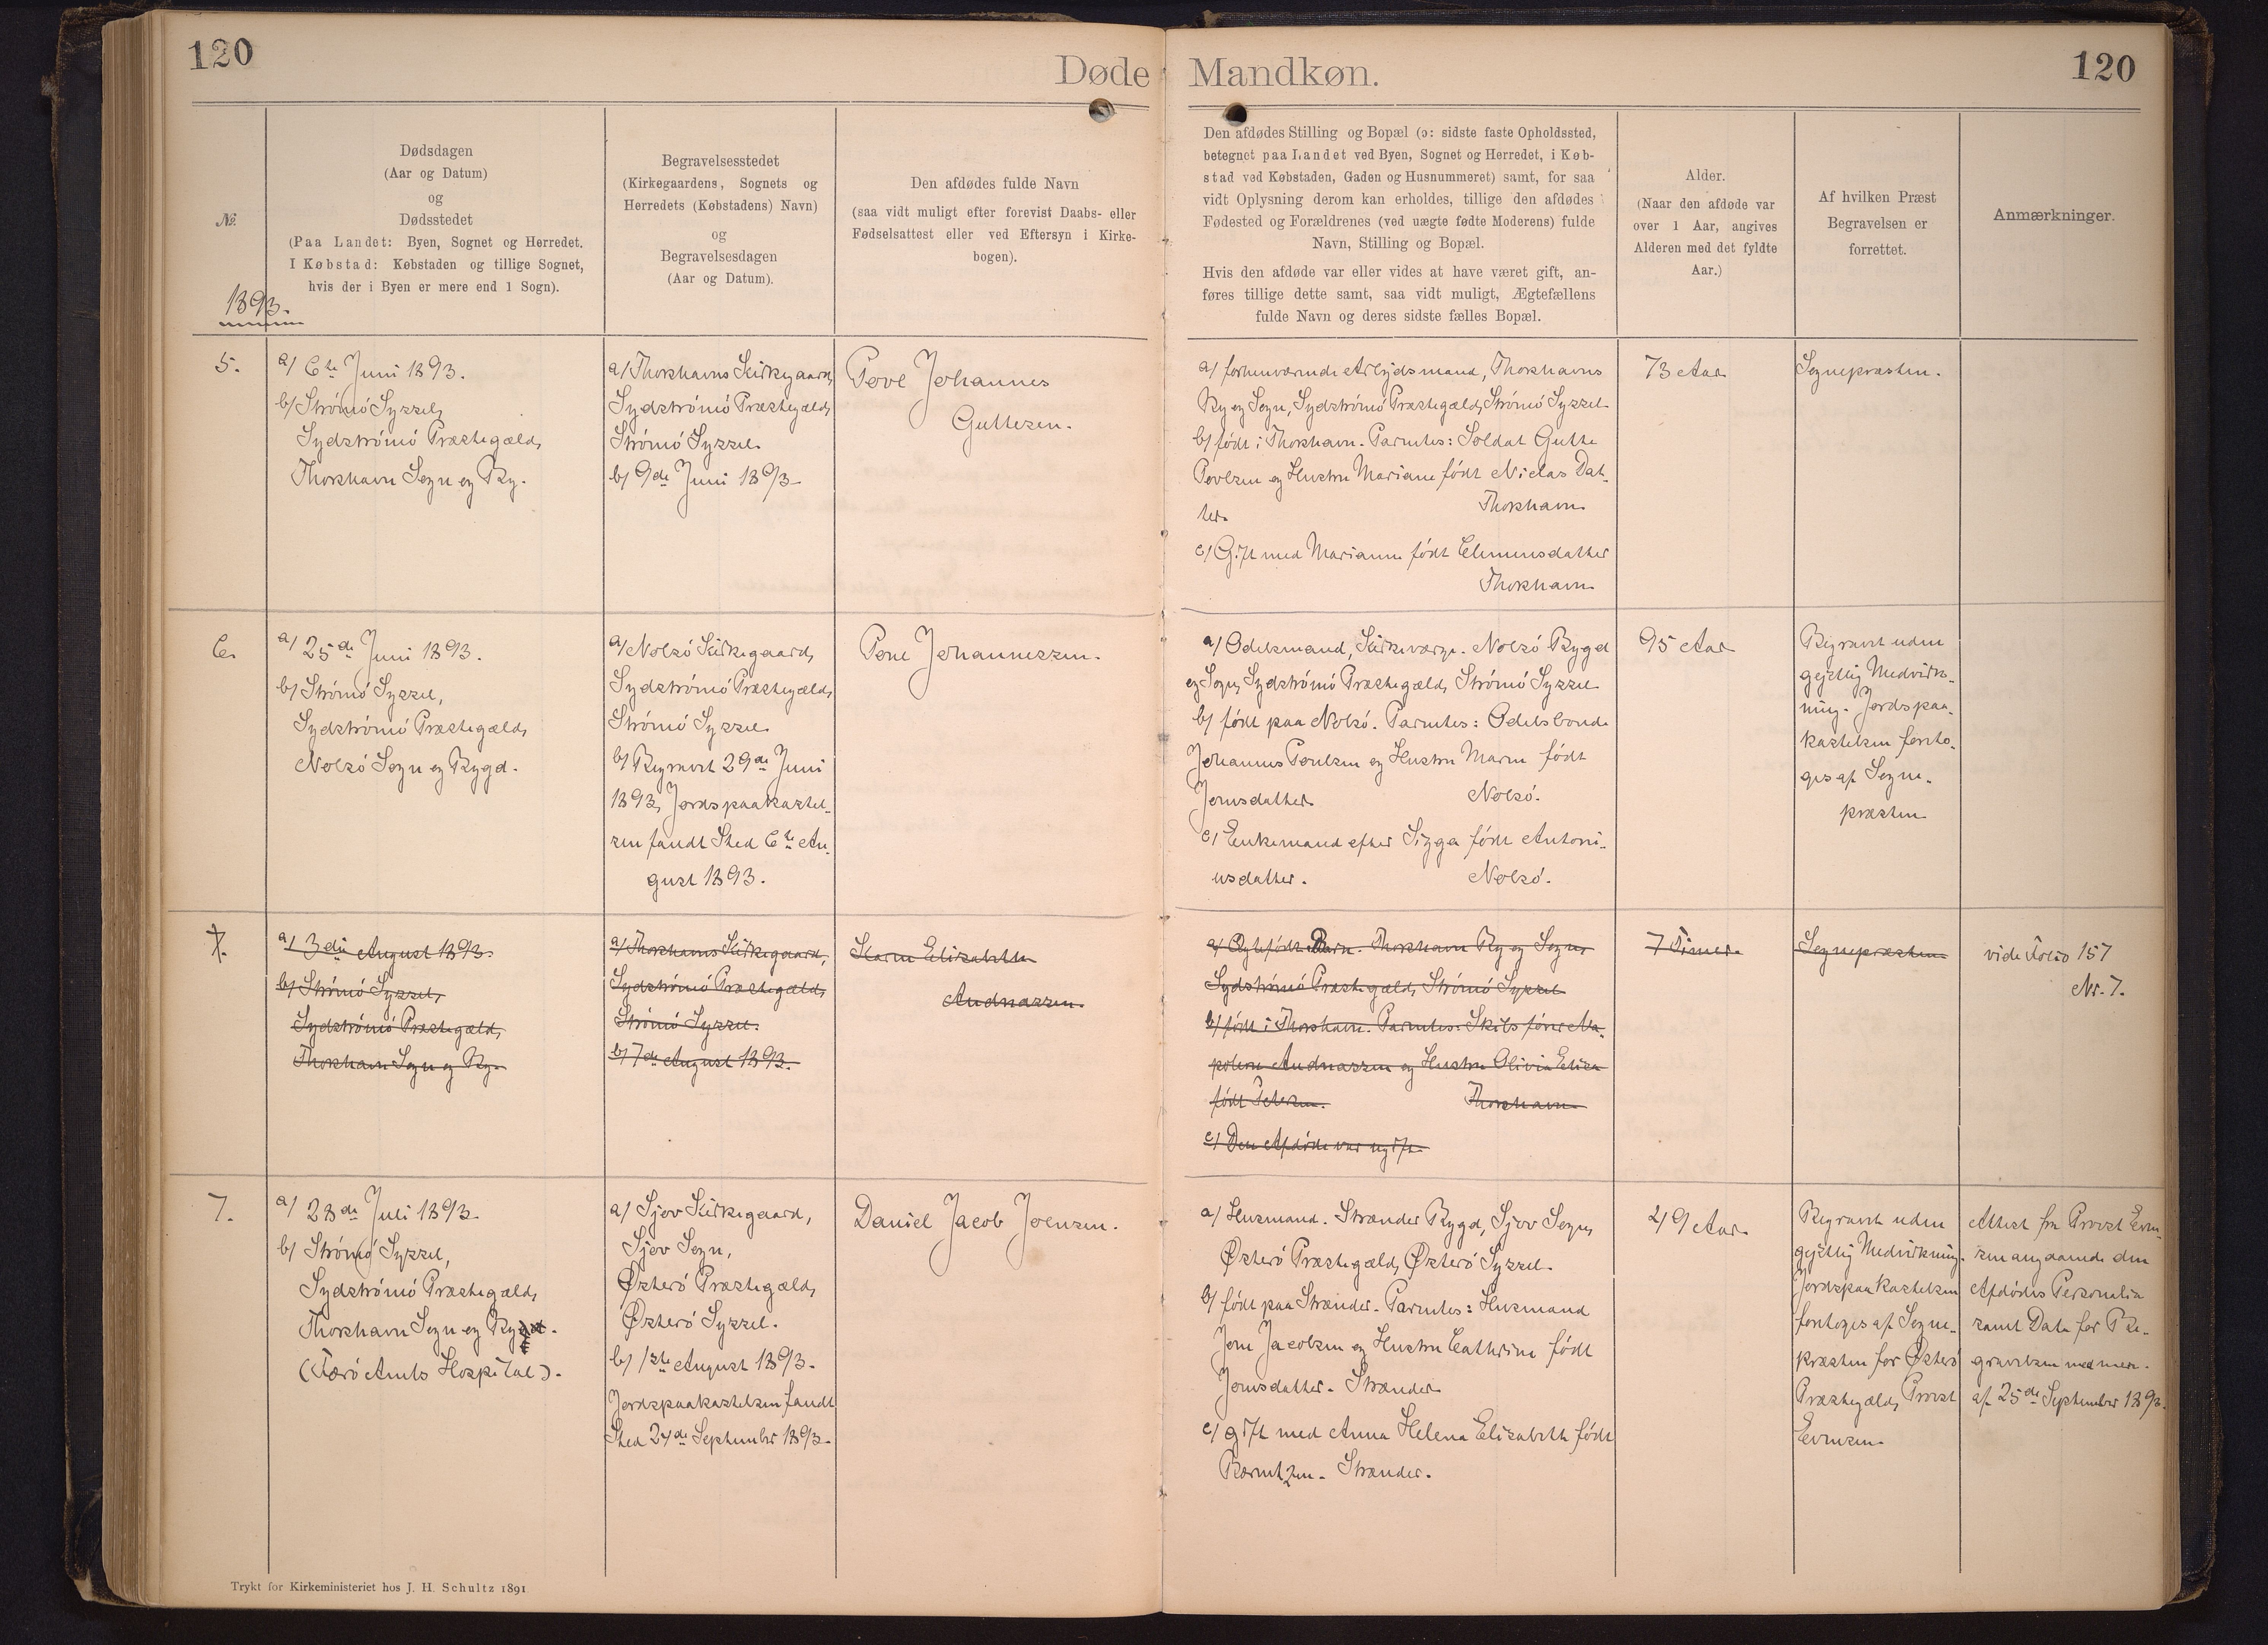 120
Døde
Mandkøn.
120
№.
1893.
Dødsdagen
(Aar og Datum)
og
Dødsstedet
(Paa Landet: Byen, Sognet og Herredet.
I Købstad: Købstaden og tillige Sognet,
hvis der i Byen er mere end 1 Sogn).
Begravelsesstedet
(Kirkegaardens, Sognets og
Herredets (Købstadens) Navn)
og
Begravelsesdagen
(Aar og Datum).
Den afdødes fulde Navn
(saa vidt muligt efter forevist Daabs- eller
Fødselsattest eller ved Eftersyn i Kirke-
bogen).
Den afdødes Stilling og Bopæl (ɔ: sidste faste Opholdssted,
betegnet paa Landet ved Byen, Sognet og Herredet, i Køb-
stad ved Købstaden, Gaden og Husnummeret) samt, for saa
vidt Oplysning derom kan erholdes, tillige den afdødes
Fødested og Forældrenes (ved uægte fødte Moderens) fulde
Navn, Stilling og Bopæl.
Hvis den afdøde var eller vides at have været gift, an-
føres tillige dette samt, saa vidt muligt, Ægtefællens
fulde Navn og deres sidste fælles Bopæl.
Alder.
(Naar den afdøde var
over 1 Aar, angives
Alderen med det fyldte
Aar.)
Af hvilken Præst
Begravelsen er
forrettet.
Anmærkninger.
5.
a/ 6te Juni 1893.
b/ Strömö Syssel,
Sydströmö Præstegæld,
Thorshavn Sogn og By.
a/ Thorshavns Kirkegaard,
Sydströmö Præstegæld,
Strömö Syssel.
b/ 9de Juni 1893.
Povl Johannes
Guttesen.
a/ forhenværende Arbejdsmand, Thorshavns
By og Sogn, Sydströmö Præstegæld, Strömö Syssel.
b/ født i Thorshavn. Parentes: Soldat Gutte
Povlsen og Hustru Mariane født Niclas Dat-
ter. Thorshavn.
c/ Gift med Marianne født Clemensdatter
Thorshavn.
73 Aar.
Sognepræsten.
6.
a/ 25de Juni 1893.
b/ Strömö Syssel,
Sydströmö Præstegæld,
Nolsö Sogn og Bygd.
a/ Nolsö Kirkegaard,
Sydströmö Præstegæld,
Strömö Syssel.
b/ Begravet 29de Juni
1893, Jordspaakastel-
sen fandt Sted 6te Au-
gust 1893.
Pone Johannessen.
a/ Odelsmand, Kirkeværge. Nolsö Bygd
og Sogn, Sydströmö Præstegæld, Strömö Syssel.
b/ født paa Nolsö. Parentes: Odelsbonde
Johannes Poulsen og Hustru Maren født
Joensdatter. Nolsö.
c/ Enkemand efter Sigga født Antoni-
usdatter. Nolsö.
95 Aar.
Begravet uden
gejstlig Medvirk-
ning. Jordspaa-
kastelsen foreto-
ges af Sogne-
præsten.
7.
a/ 3die August 1893.
b/ Strömö Syssel,
Sydströmö Præstegæld,
Thorshavn Sogn og By.
a/ Thorshavns Kirkegaard,
Sydströmö Præstegæld,
Strömö Syssel.
b/ 7de August 1893.
Karen Elisabeth
Andreassen.
a/ Ægtefødt Barn. Thorshavn By og Sogn,
Sydströmö Præstegæld, Strömö Syssel.
b/ født i Thorshavn. Parentes: Skibsfører Na-
poleon Andreassen og Hustru Olivia Elisa
født Petersen. Thorshavn.
c/ Den Afdøde var ugift.
7 Timer.
Sognepræsten.
vide Folio 157
Nr. 7.
7.
a/ 28de Juli 1893.
b/ Strömö Syssel,
Sydströmö Præstegæld,
Thorshavn Sogn og By.
(Færö Amts Hospital).
a/ Sjov Kirkegaard,
Sjov Sogn,
Østerö Præstegæld,
Østerö Syssel.
b/ 1ste August 1893.
Jordspaakastelsen fandt
Sted 24de September 1893.
Daniel Jacob Joensen.
a/ Husmand. Strænder Bygd, Sjov Sogn,
Østerö Præstegæld, Østerö Syssel.
b/ født paa Strænder. Parentes: Husmand
Joen Jacobsen og Hustru Cathrine født
Joensdatter. Strænder.
c/ gift med Anna Helena Elisabeth født
Berentsen. Strænder.
49 Aar.
Begravet uden
gejstlig Medvirkning.
Jordspaakastelsen
foretoges af Sogne-
præsten for Østerö
Præstegæld, Provst
Evensen.
Attest fra Provst Even-
sen angaaende den
Afdødes Personalia
samt Dato for Be-
gravelsen med mere.
af 25de September 1893.
Trykt for Kirkeministeriet hos J. H. Schultz 1891